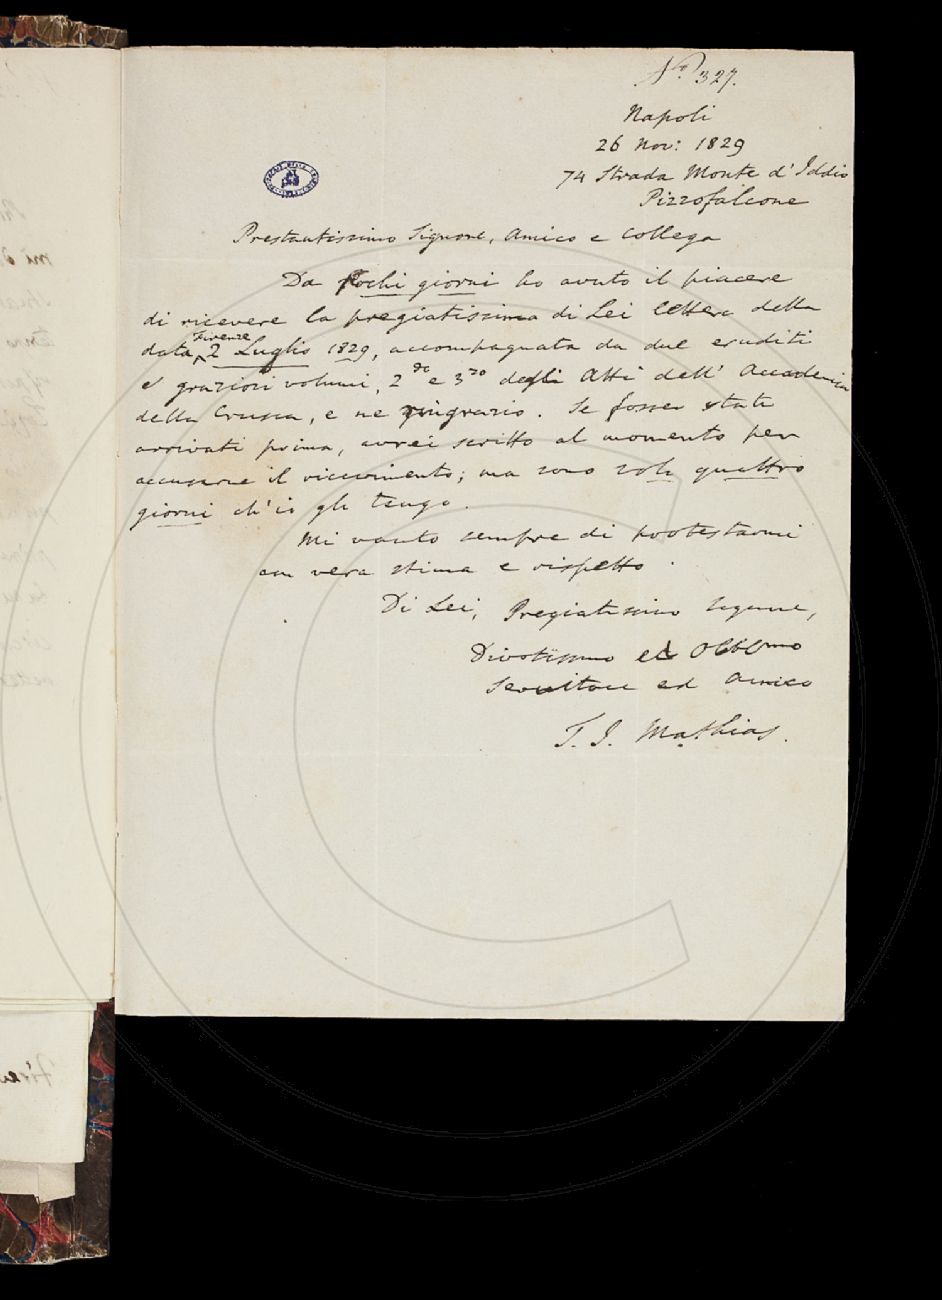 N.º 327.
Napoli
26 Nov: 1829
74 Strada Monte d'Iddio
Pizzofalcone
Prestantissimo Signore, Amico e Collega
Da pochi giorni ho avuto il piacere
di ricevere la pregiatissima di Lei lettera della
data Firenze 2 Luglio 1829, accompagnata da due eruditi
e graziosi volumi, 2do e 3zo degli Atti dell' Accademia
della Crusca, e ne ringrazio. Se fosser stati
arrivati prima, avrei scritto al momento per
accusarne il ricevimento; ma sono soli quattro
giorni ch'io gli tengo.
Mi vanto sempre di protestarmi
con vera stima e rispetto.
Di Lei, Pregiatissimo Signore,
Divotissmo ed Obblmo
Servitore ed Amico
T. J. Mathias.